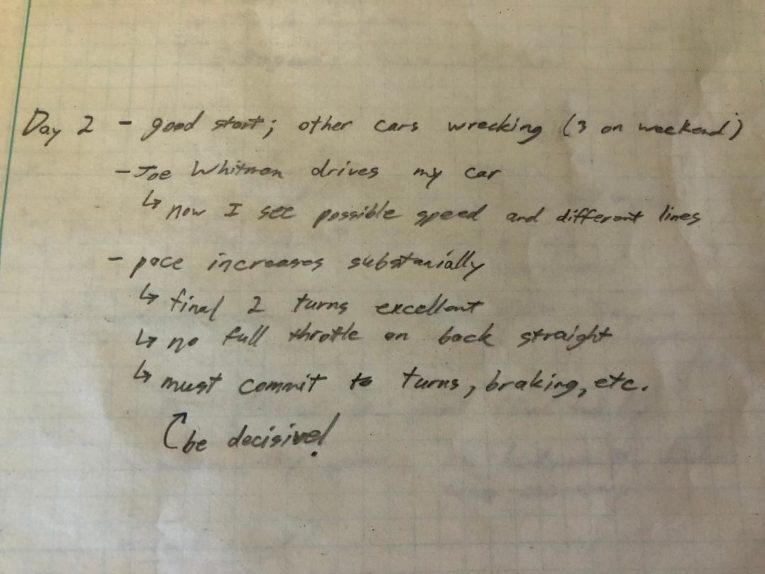 Day 2 - good start; other cars wrecking (3 on weekend)
- Joe Whitman drives my car
↳ now I see possible speed and different lines
- pace increases substanially
↳ final 2 turns excellent
↳ no full throtle on back straight
↳ must commit to turns, braking, etc.
↑ be decisive!